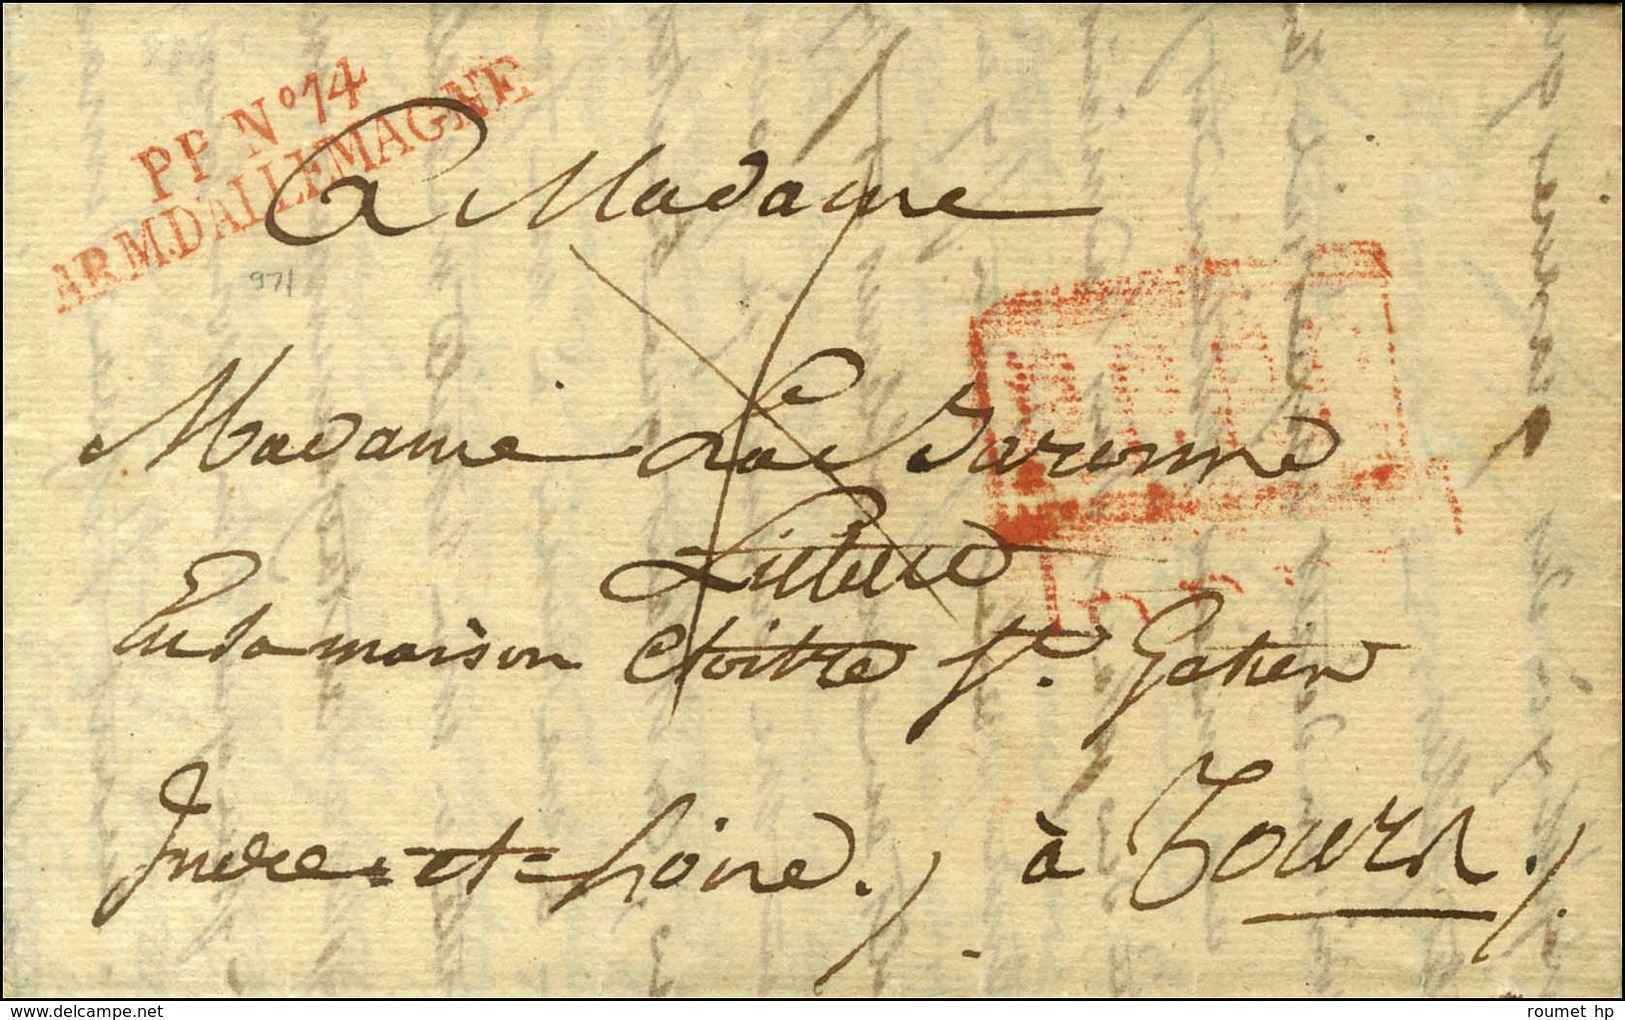 PP. N.º 14
ARM.D'ALLEMAGNE
a Madame
971
P.P.P.P.
Madame La Baronne
En sa maison cloitre St. Gatien
Indre-et-Loire. à Tours.
roumet hp